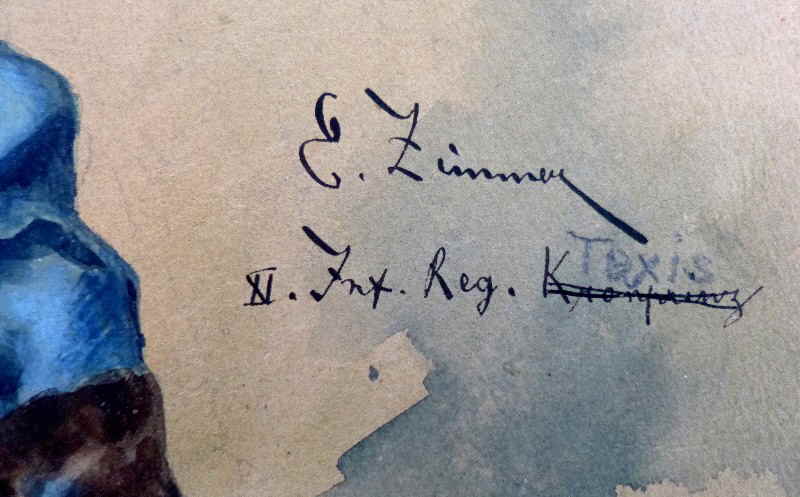 E. Zimmer
Taxis
XI. Inf. Reg. Kronprinz